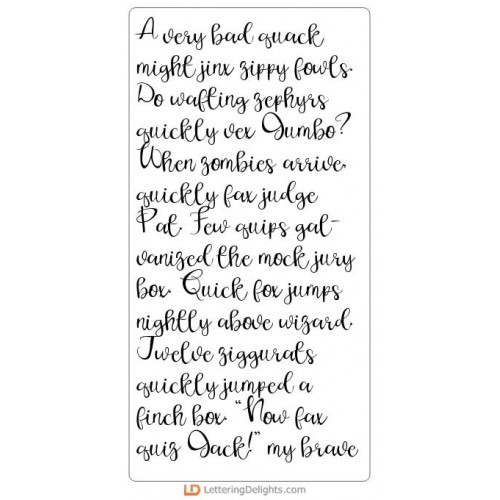 A very bad quack
might jinx zippy fowls.
Do wafting zephyrs
quickly vex Jumbo?
When zombies arrive,
quickly fax judge
Pat. Few quips gal-
vanized the mock jury
box. Quick fox jumps
nightly above wizard.
Twelve ziggurats
quickly jumped a
finch box. "Now fax
quiz Jack!" my brave
LD LetteringDelights.com